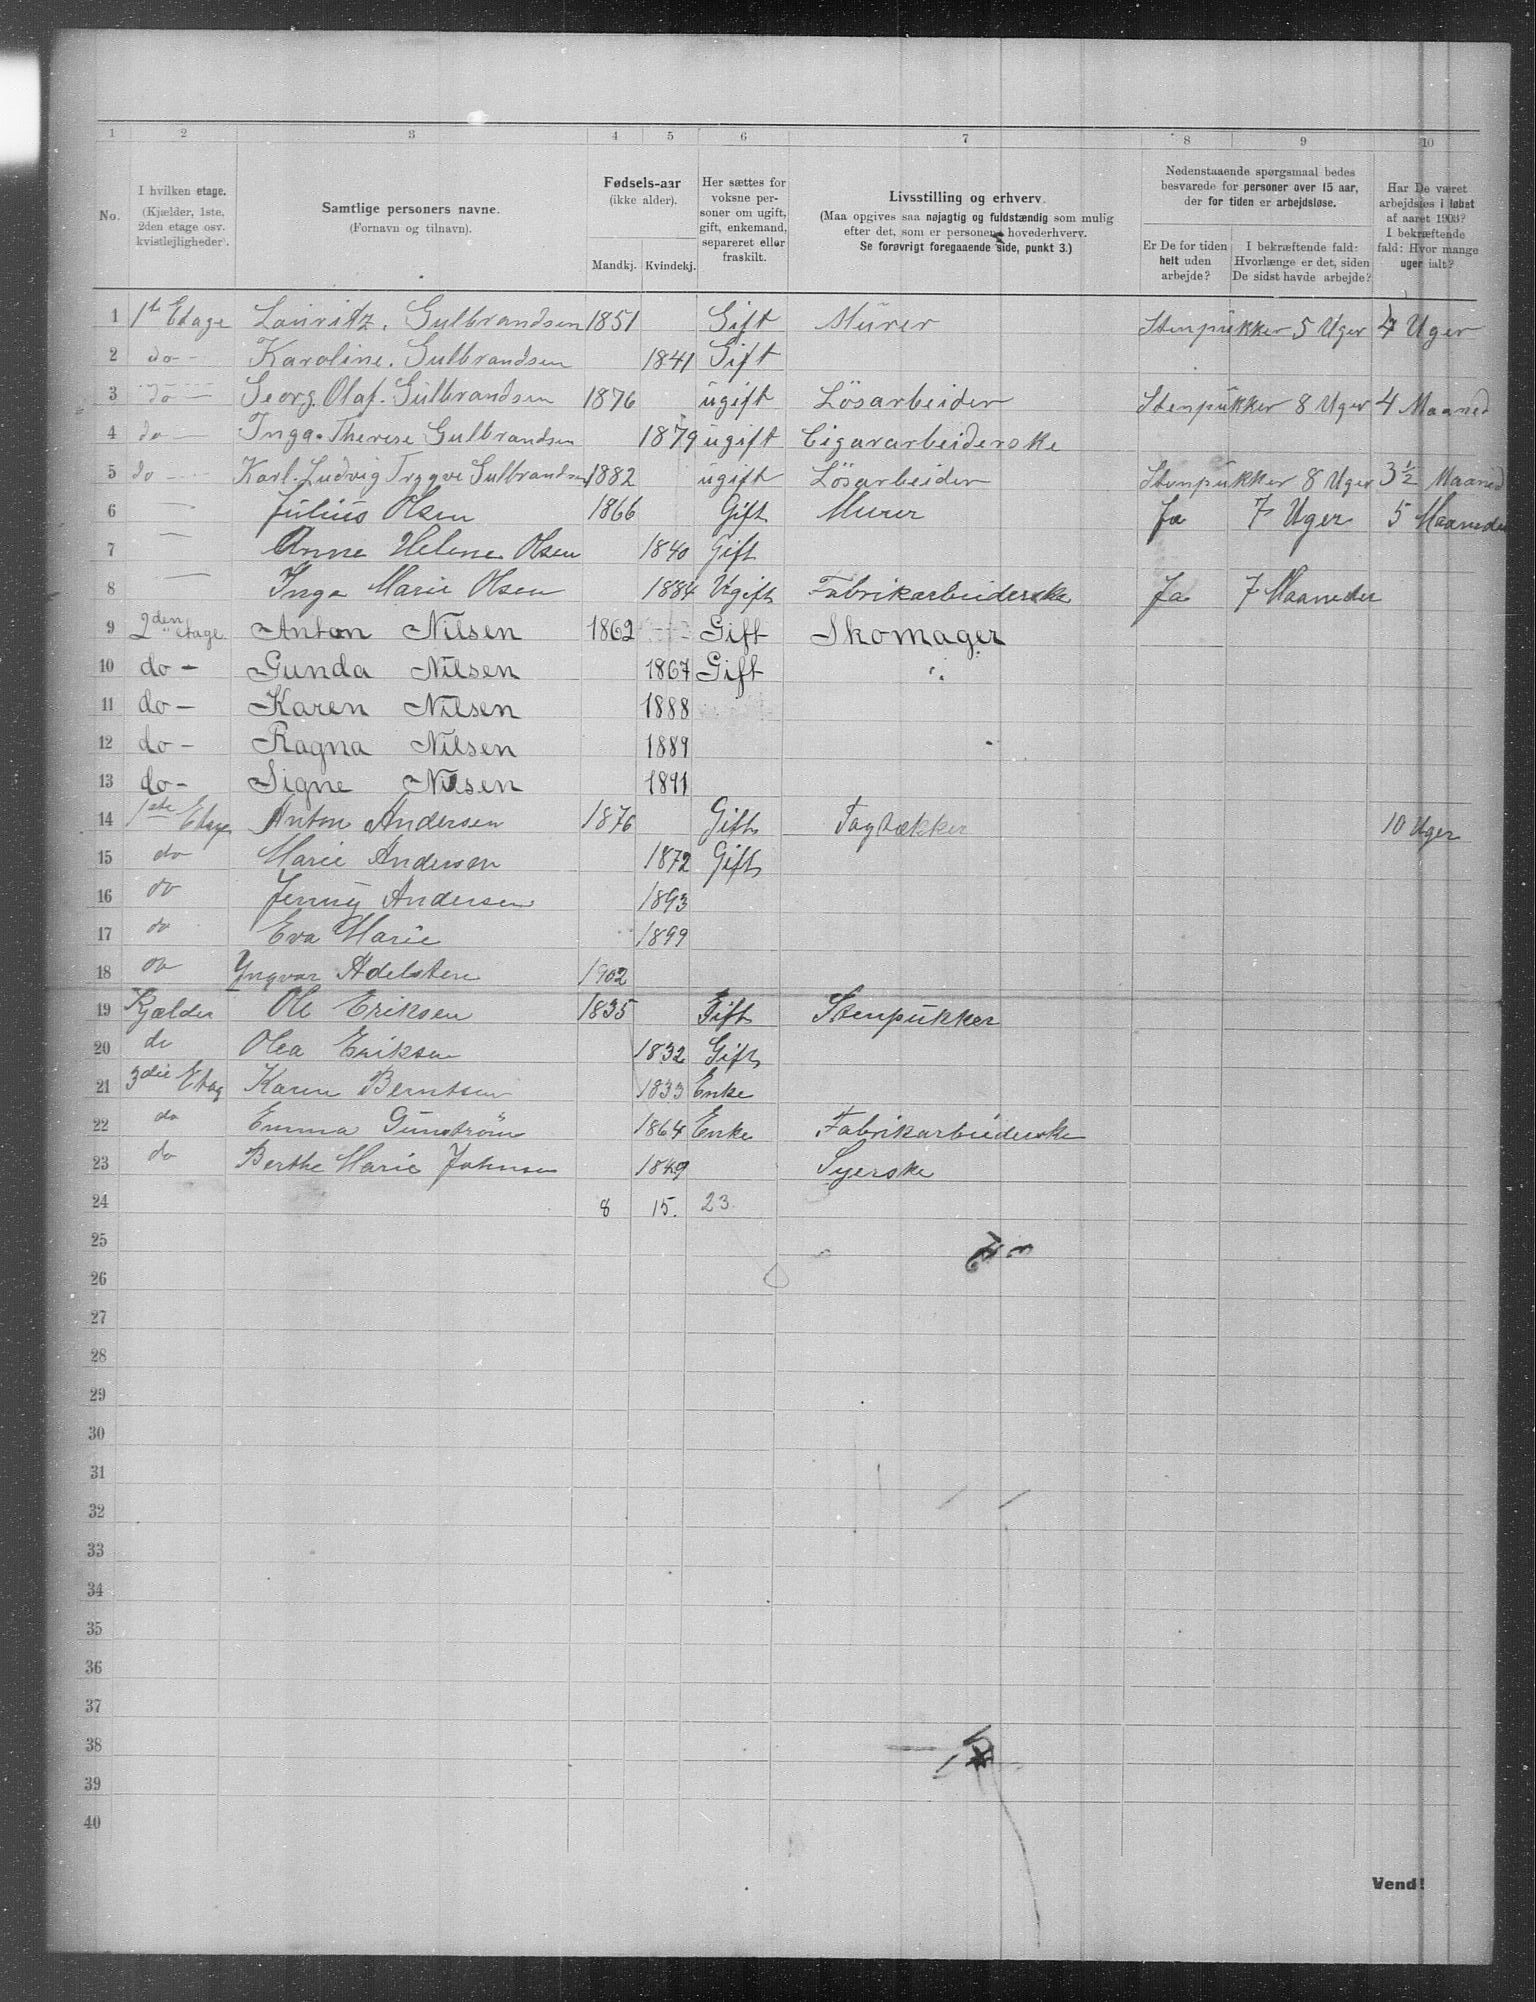 1 2 3 4 5 6 7 8 9 10
No.
I hvilken etage.
(Kjælder, 1ste,
2den etage osv.
kvistlejligheder).
Samtlige personers navne.
(Fornavn og tilnavn).
Fødsels-aar
(ikke alder).
Mandkj. Kvindekj.
Her sættes for
voksne per-
soner om ugift,
gift, enkemand,
separeret eller
fraskilt.
Livsstilling og erhverv.
(Maa opgives saa nøjagtig og fuldstændig som mulig
efter det, som er personens hovederhverv.
Se forøvrigt foregaaende side, punkt 3.)
Nedenstaaende spørgsmaal bedes
besvarede for personer over 15 aar,
der for tiden er arbejdsløse.
Er De for tiden
helt uden
arbejde?
I bekræftende fald:
Hvorlænge er det, siden
De sidst havde arbejde?
Har De været
arbejdsløs i løbet
af aaret 1903?
I bekræftende
fald: Hvor mange
uger ialt?
1 1ste Etage Lauritz. Gulbrandsen 1851 Gift Murer Stenpukker 5 Uger 4 Uger
2 do - Karoline. Gulbrandsen 1841 Gift
3 do - Georg. Olaf. Gulbrandsen 1876 ugift Lösarbeider Stenpukker 8 Uger 4 Maaned
4 do - Inga. Therese Gulbrandsen 1879 ugift Cigararbeiderske
5 do - Karl. Ludvig Trygve Gulbrandsen 1882 ugift Lösarbeider Stenpukker 8 Uger 3½ Maaned
6 Julius Olsen 1866 Gift Murer Ja 7 Uger 5 Maaneder
7 Anne Helene Olsen 1840 Gift
8 Inga Marie Olsen 1884 Ugift Fabrikarbeiderske Ja 7 Maaneder
9 2den etage Anton Nilsen 1862 Gift Skomager
10 do - Gunda Nilsen 1867 Gift
11 do - Karen Nilsen 1888
12 do - Ragna Nilsen 1889
13 do - Signe Nilsen 1891
14 1ste Etage Anton Andersen 1876 Gift Tagtækker 10 Uger
15 do Marie Andersen 1872 Gift
16 do Jenny Andersen 1893
17 do Eva Marie 1899
18 do Yngvar Adelsten 1902
19 Kjælder Ole Eriksen 1835 Gift Stenpukker
20 do Olea Eriksen 1832 Gift
21 3die Etag Karen Berntsen 1833 Enke
22 do Emma 1864 Enke Fabrikarbeiderske
23 do Berthe Marie Johnsen 1849 Syerske
24 8 15. 23
25
26
27
28
29
30
31
32
33
34
35
36
37
38
39
40
Vend!